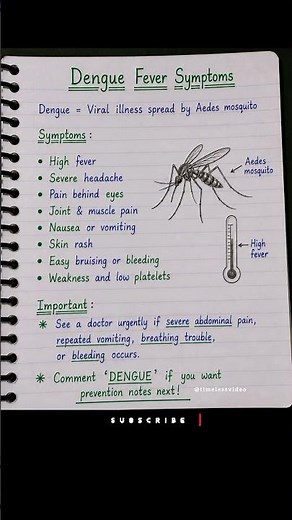 Dengue Fever Symptoms
Dengue = Viral illness spread by Aedes mosquito
Symptoms :
• High fever
• Severe headache
• Pain behind eyes
• Joint & muscle pain
• Nausea or vomiting
• Skin rash
• Easy bruising or bleeding
• Weakness and low platelets
Aedes
mosquito
High
fever
Important :
* See a doctor urgently if severe abdominal pain,
repeated vomiting, breathing trouble,
or bleeding occurs.
* Comment ‘DENGUE’ if you want
prevention notes next!
SUBSCRIBE